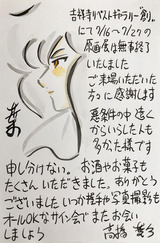 吉祥寺リベストギャラリー「創」
にて7/16〜7/27の
原画展は無事終了
いたしました
ご来場いただいた
方々に感謝します
悪条件の中 遠く
からいらした人も
多かった様です
申し分けない。お酒やお菓子も
たくさんいただきました。ありがとう
ございました いつか握手や写真撮影も
オールOKなサイン会でまたお会い
しましょう
高橋葉介
葉介